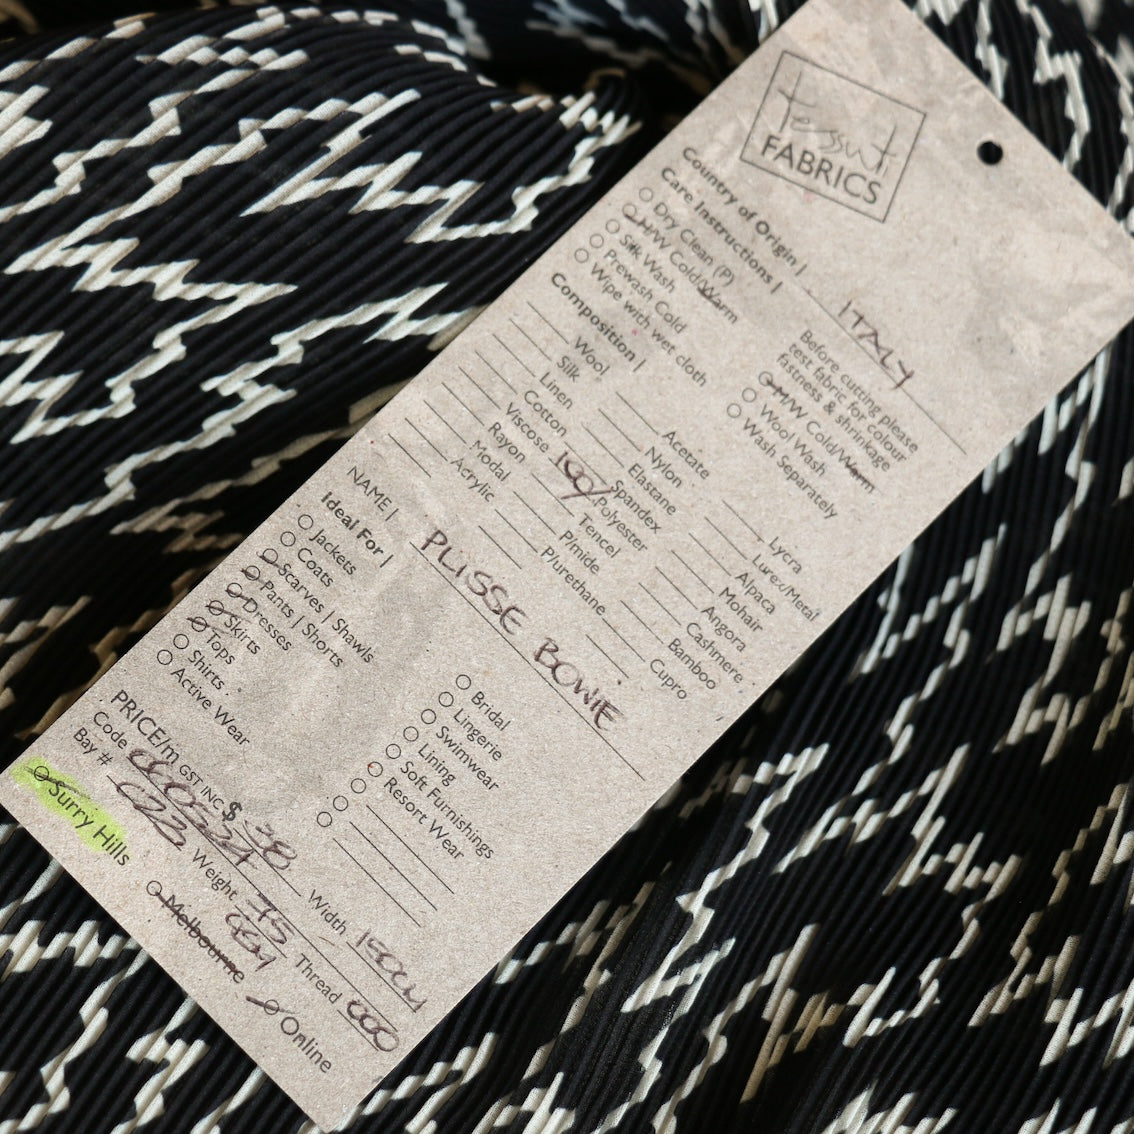 tessuti
FABRICS
Country of Origin | ITALY
Care Instructions |
Dry Clean (P)
H/W Cold/Warm
Silk Wash
Prewash Cold
Wipe with wet cloth
Before cutting please
test fabric for colour
fastness & shrinkage
M/W Cold/Warm
Wool Wash
Wash Separately
Composition |
Wool
Silk
Linen
Cotton
Viscose
Rayon
Modal
Acrylic
Acetate
Nylon
Elastane
Spandex
100% Polyester
Tencel
P/mide
P/urethane
Lycra
Lurex/Metal
Alpaca
Mohair
Angora
Cashmere
Bamboo
Cupro
NAME | PLISSE BOWIE
Ideal For |
Jackets
Coats
Scarves | Shawls
Pants | Shorts
Dresses
Skirts
Tops
Shirts
Active Wear
Bridal
Lingerie
Swimwear
Lining
Soft Furnishings
Resort Wear
PRICE/m GST INC $ 38 Width 150cm
Code Weight 75
Bay # Thread
Surry Hills
Melbourne
Online